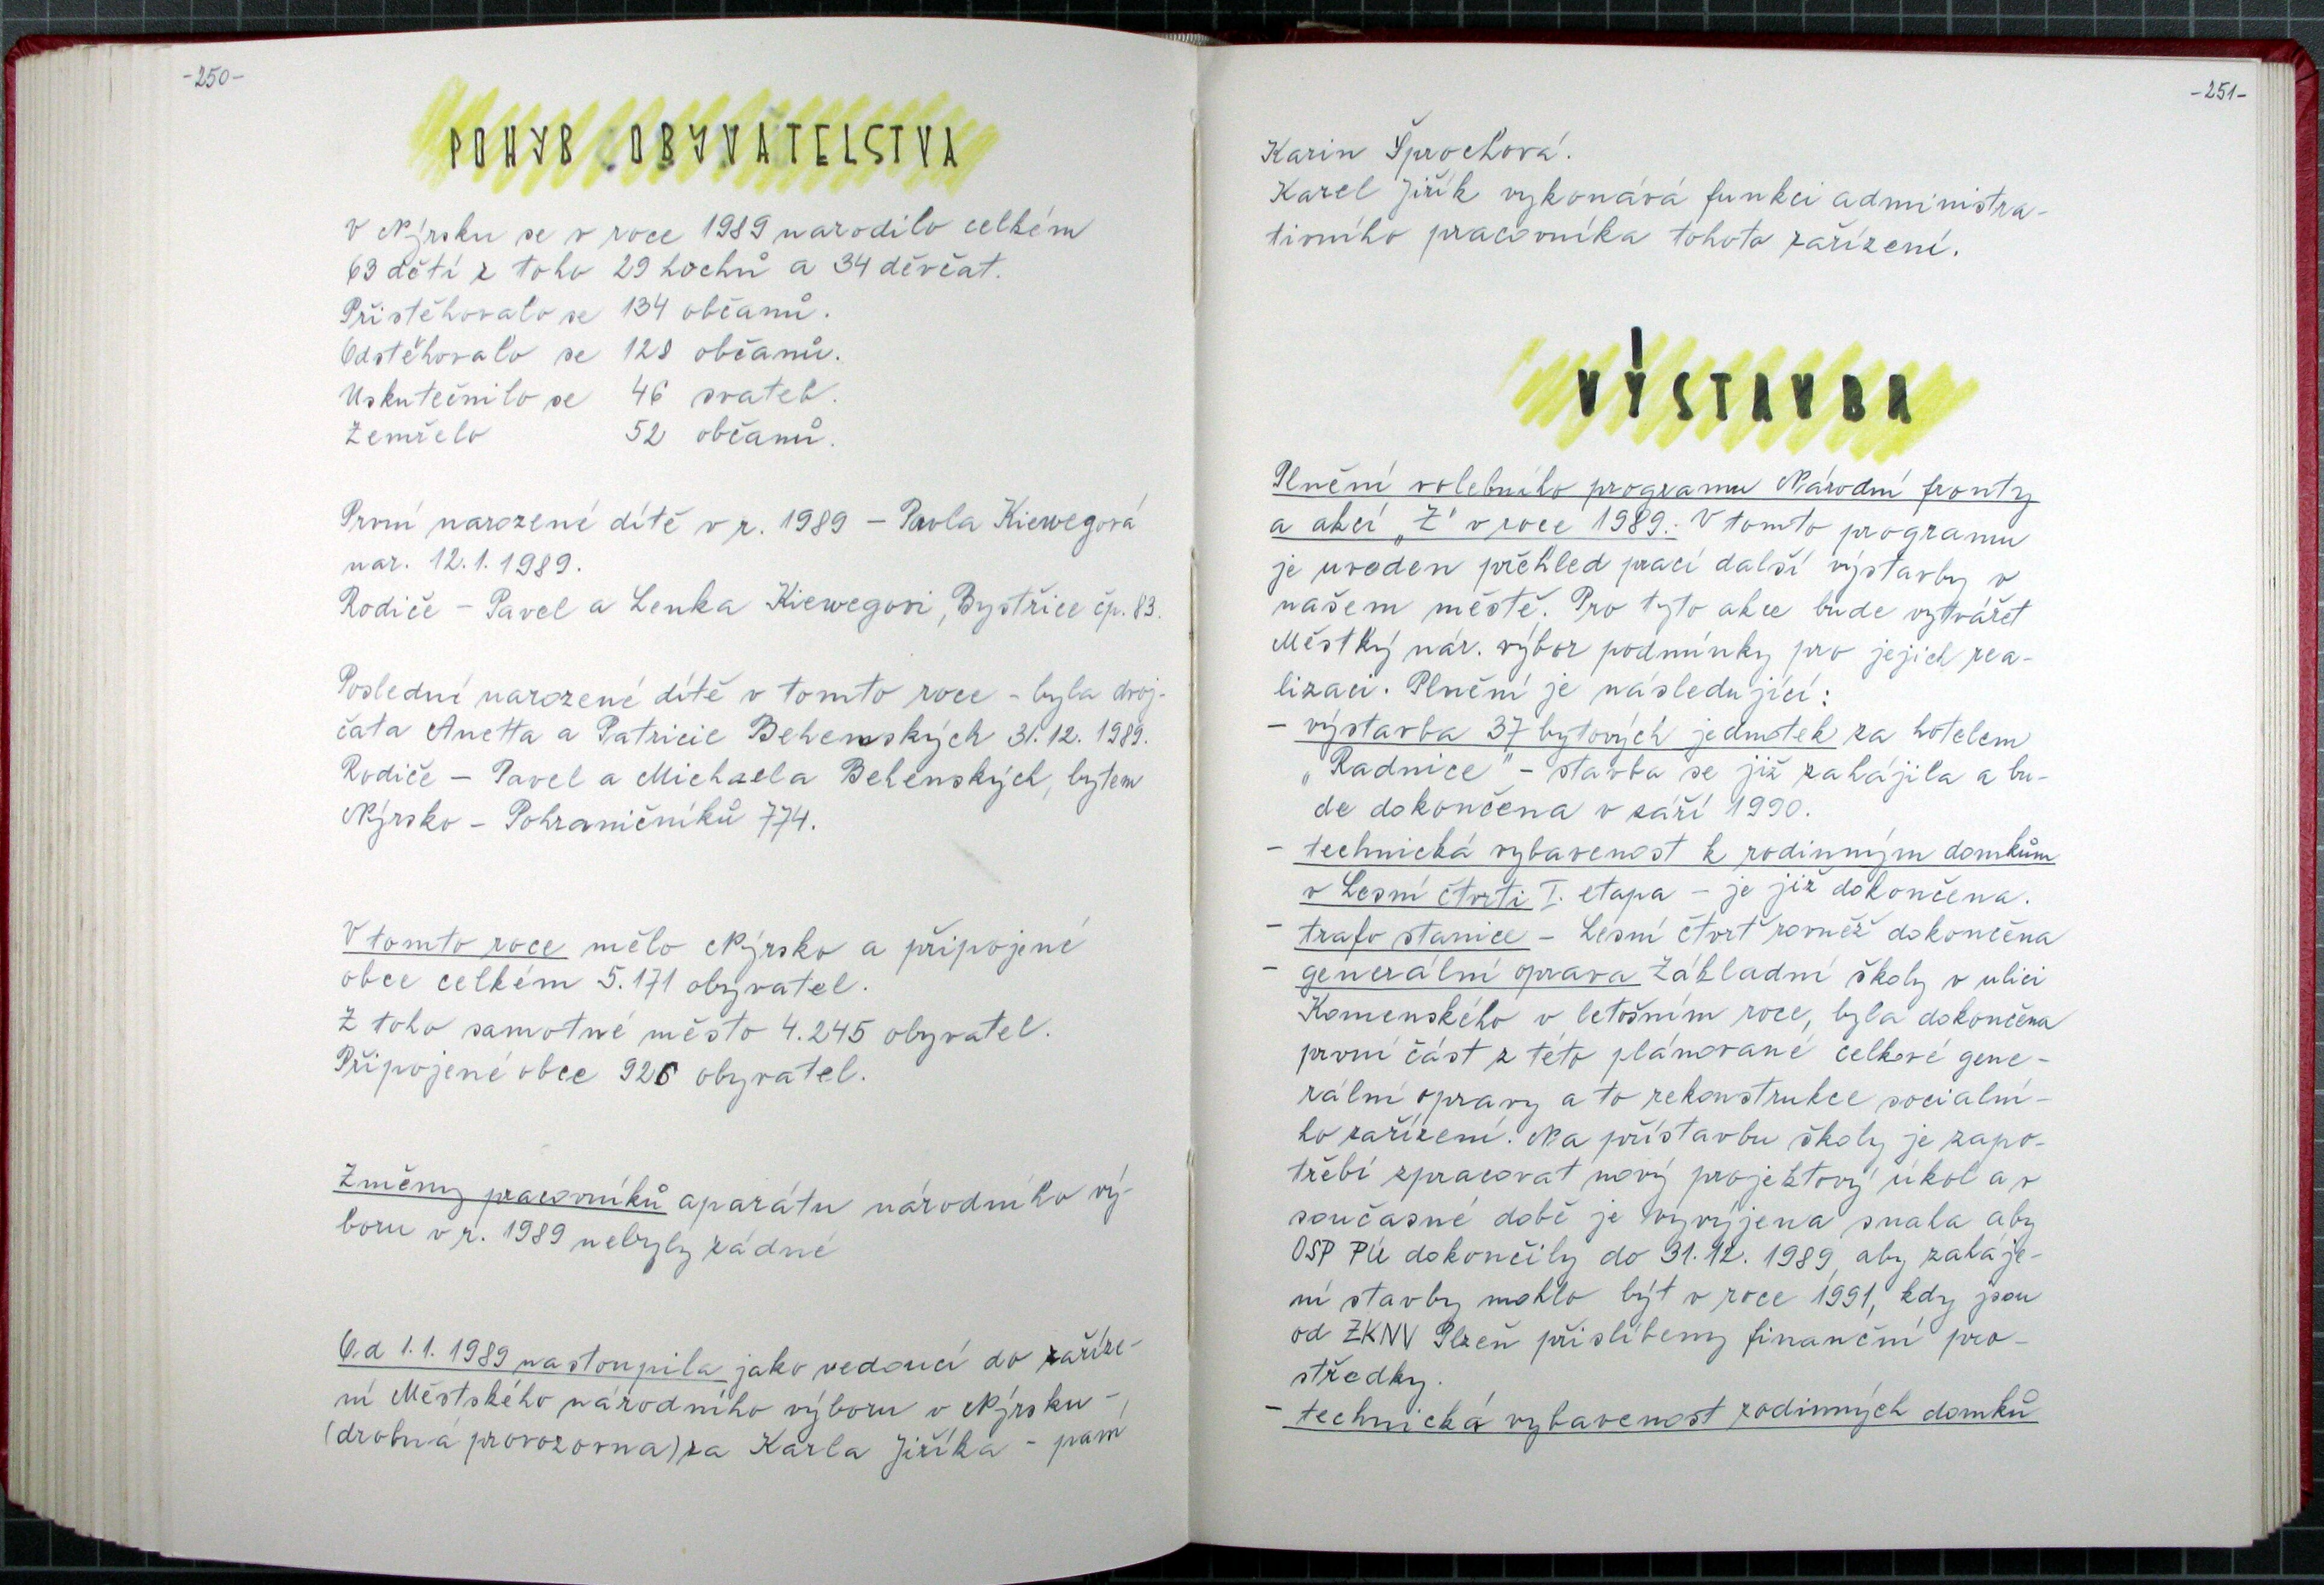 -250-
POHYB OBYVATELSTVA
V Nýrsku se v roce 1989 narodilo celkém
63 dětí z toho 29 hochů a 34 děvčat.
Přistěhovalo se 134 občanů.
Odstěhovalo se 128 občanů.
Uskutečnilo se 46 svateb.
Zemřelo 52 občanů.
První narozené dítě v r. 1989 - Pavla Kiewegová
nar. 12.1.1989.
Rodiče - Pavel a Lenka Kiewegovi, Bystřice čp. 83.
Poslední narozené dítě v tomto roce - byla dvoj-
čata Anetta a Patricie Behenských 31.12. 1989.
Rodiče - Pavel a Michaela Behenských, bytem
Nýrsko - Pohraničníků 774.
V tomto roce mělo Nýrsko a připojené
obce celkém 5.171 obyvatel.
Z toho samotné město 4.245 obyvatel.
Připojené obce 926 obyvatel.
Změny pracovníků aparátu národního vý-
boru v r. 1989 nebyly žádné
Od 1.1. 1989 nastoupila jako vedoucí do zaříze-
ní Městského národního výboru v Nýrsku -
(drobná provozovna) za Karla Jiříka - paní
-251-
Karin Šprochová.
Karel Jiřík vykonává funkci administra-
tivního pracovníka tohoto zařízení.
VÝSTAVBA
Plnění volebního programu Národní fronty
a akcí „Z" v roce 1989.: V tomto programu
je uveden přehled prací další výstavby v
našem městě. Pro tyto akce bude vytvářet
Městký nár. výbor podmínky pro jejich rea-
lizaci. Plnění je následující:
- výstavba 37 bytových jednotek za hotelem
„Radnice" - stavba se již zahájila a bu-
de dokončena v září 1990.
- technická vybavenost k rodinným domkům
v Lesní čtvrti I. etapa - je již dokončena.
- trafo stanice - Lesní čtvrť rovněž dokončena
- generální oprava Základní školy v ulici
Komenského v letošním roce, byla dokončena
první část z této plánované celkové gene-
rální opravy a to rekonstrukce socialní-
ho zařízení. Na přístavbu školy je zapo-
třebí zpracovat nový projektový úkol a v
současné době je vyvýjena snaha aby
OSP PÚ dokončily do 31.12. 1989, aby zaháje-
ní stavby mohlo být v roce 1991, kdy jsou
od ZKNV Plzeň přislíbeny finanční pro-
středky.
- technická vybavenost rodinných domků